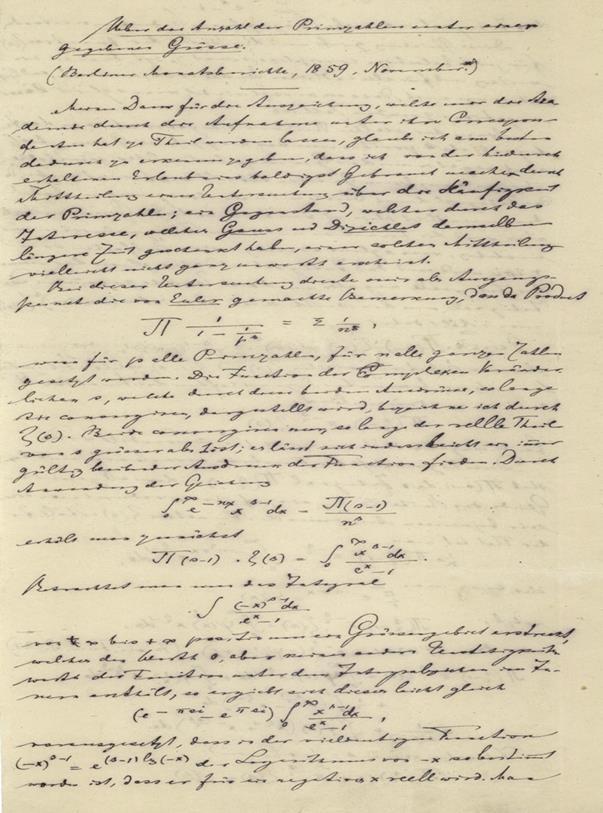 Ueber die Anzahl der Primzahlen unter einer
gegebenen Grösse.
(Berliner Monatsberichte, 1859, November.)
Meinen Dank für die Auszeichnung, welche mir die Aka-
demie durch die Aufnahme unter ihre Correspon-
denten hat zu Theil werden lassen, glaube ich am besten
dadurch zu erkennen zu geben, dass ich von der hiedurch
erhaltenen Erlaubniss baldigst Gebrauch mache durch
Mittheilung einer Untersuchung über die Häufigkeit
der Primzahlen; ein Gegenstand, welcher durch das
Interesse, welches Gauss und Dirichlet demselben
längere Zeit geschenkt haben, einer solchen Mittheilung
vielleicht nicht ganz unwerth erscheint.
Bei dieser Untersuchung diente mir als Ausgangs-
punkt die von Euler gemachte Bemerkung, dass das Product
∏ 1/(1 − 1/p^s) = Σ 1/n^s,
wenn für p alle Primzahlen, für n alle ganzen Zahlen
gesetzt werden. Die Function der complexen Veränder-
lichen s, welche durch diese beiden Ausdrücke, so lange
sie convergiren, dargestellt wird, bezeichne ich durch
ζ(s). Beide convergiren nur, so lange der reelle Theil
von s grösser als 1 ist; es lässt sich indess leicht ein immer
gültig bleibender Ausdruck der Function finden. Durch
Anwendung der Gleichung
∫₀^∞ e^(−nx) x^(s−1) dx = Π(s−1)/n^s
erhält man zunächst
Π(s−1) . ζ(s) = ∫₀^∞ x^(s−1) dx/(e^x − 1).
Betrachtet man nun das Integral
∫ (−x)^(s−1) dx/(e^x − 1)
von +∞ bis +∞ positiv um ein Grössengebiet erstreckt,
welches den Werth 0, aber keinen andern Unstetigkeits-
werth der Function unter dem Integralzeichen im In-
nern enthält, so ergiebt sich dieses leicht gleich
(e^(−πsi) − e^(πsi)) ∫₀^∞ x^(s−1) dx/(e^x − 1),
vorausgesetzt, dass in der vieldeutigen Function
(−x)^(s−1) = e^((s−1) lg(−x)) der Logarithmus von −x so bestimmt
worden ist, dass er für ein negatives x reell wird. Man